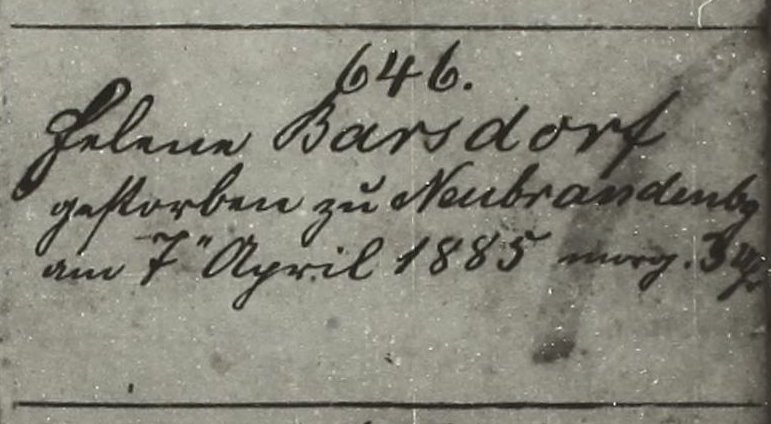 646.
Helene Barsdorf
gestorben zu Neubrandenbg
am 7" April 1885 morg. 3 Uhr